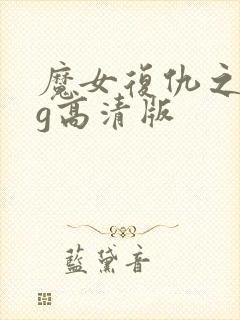 魔女復仇之
g高清版
藍黛音